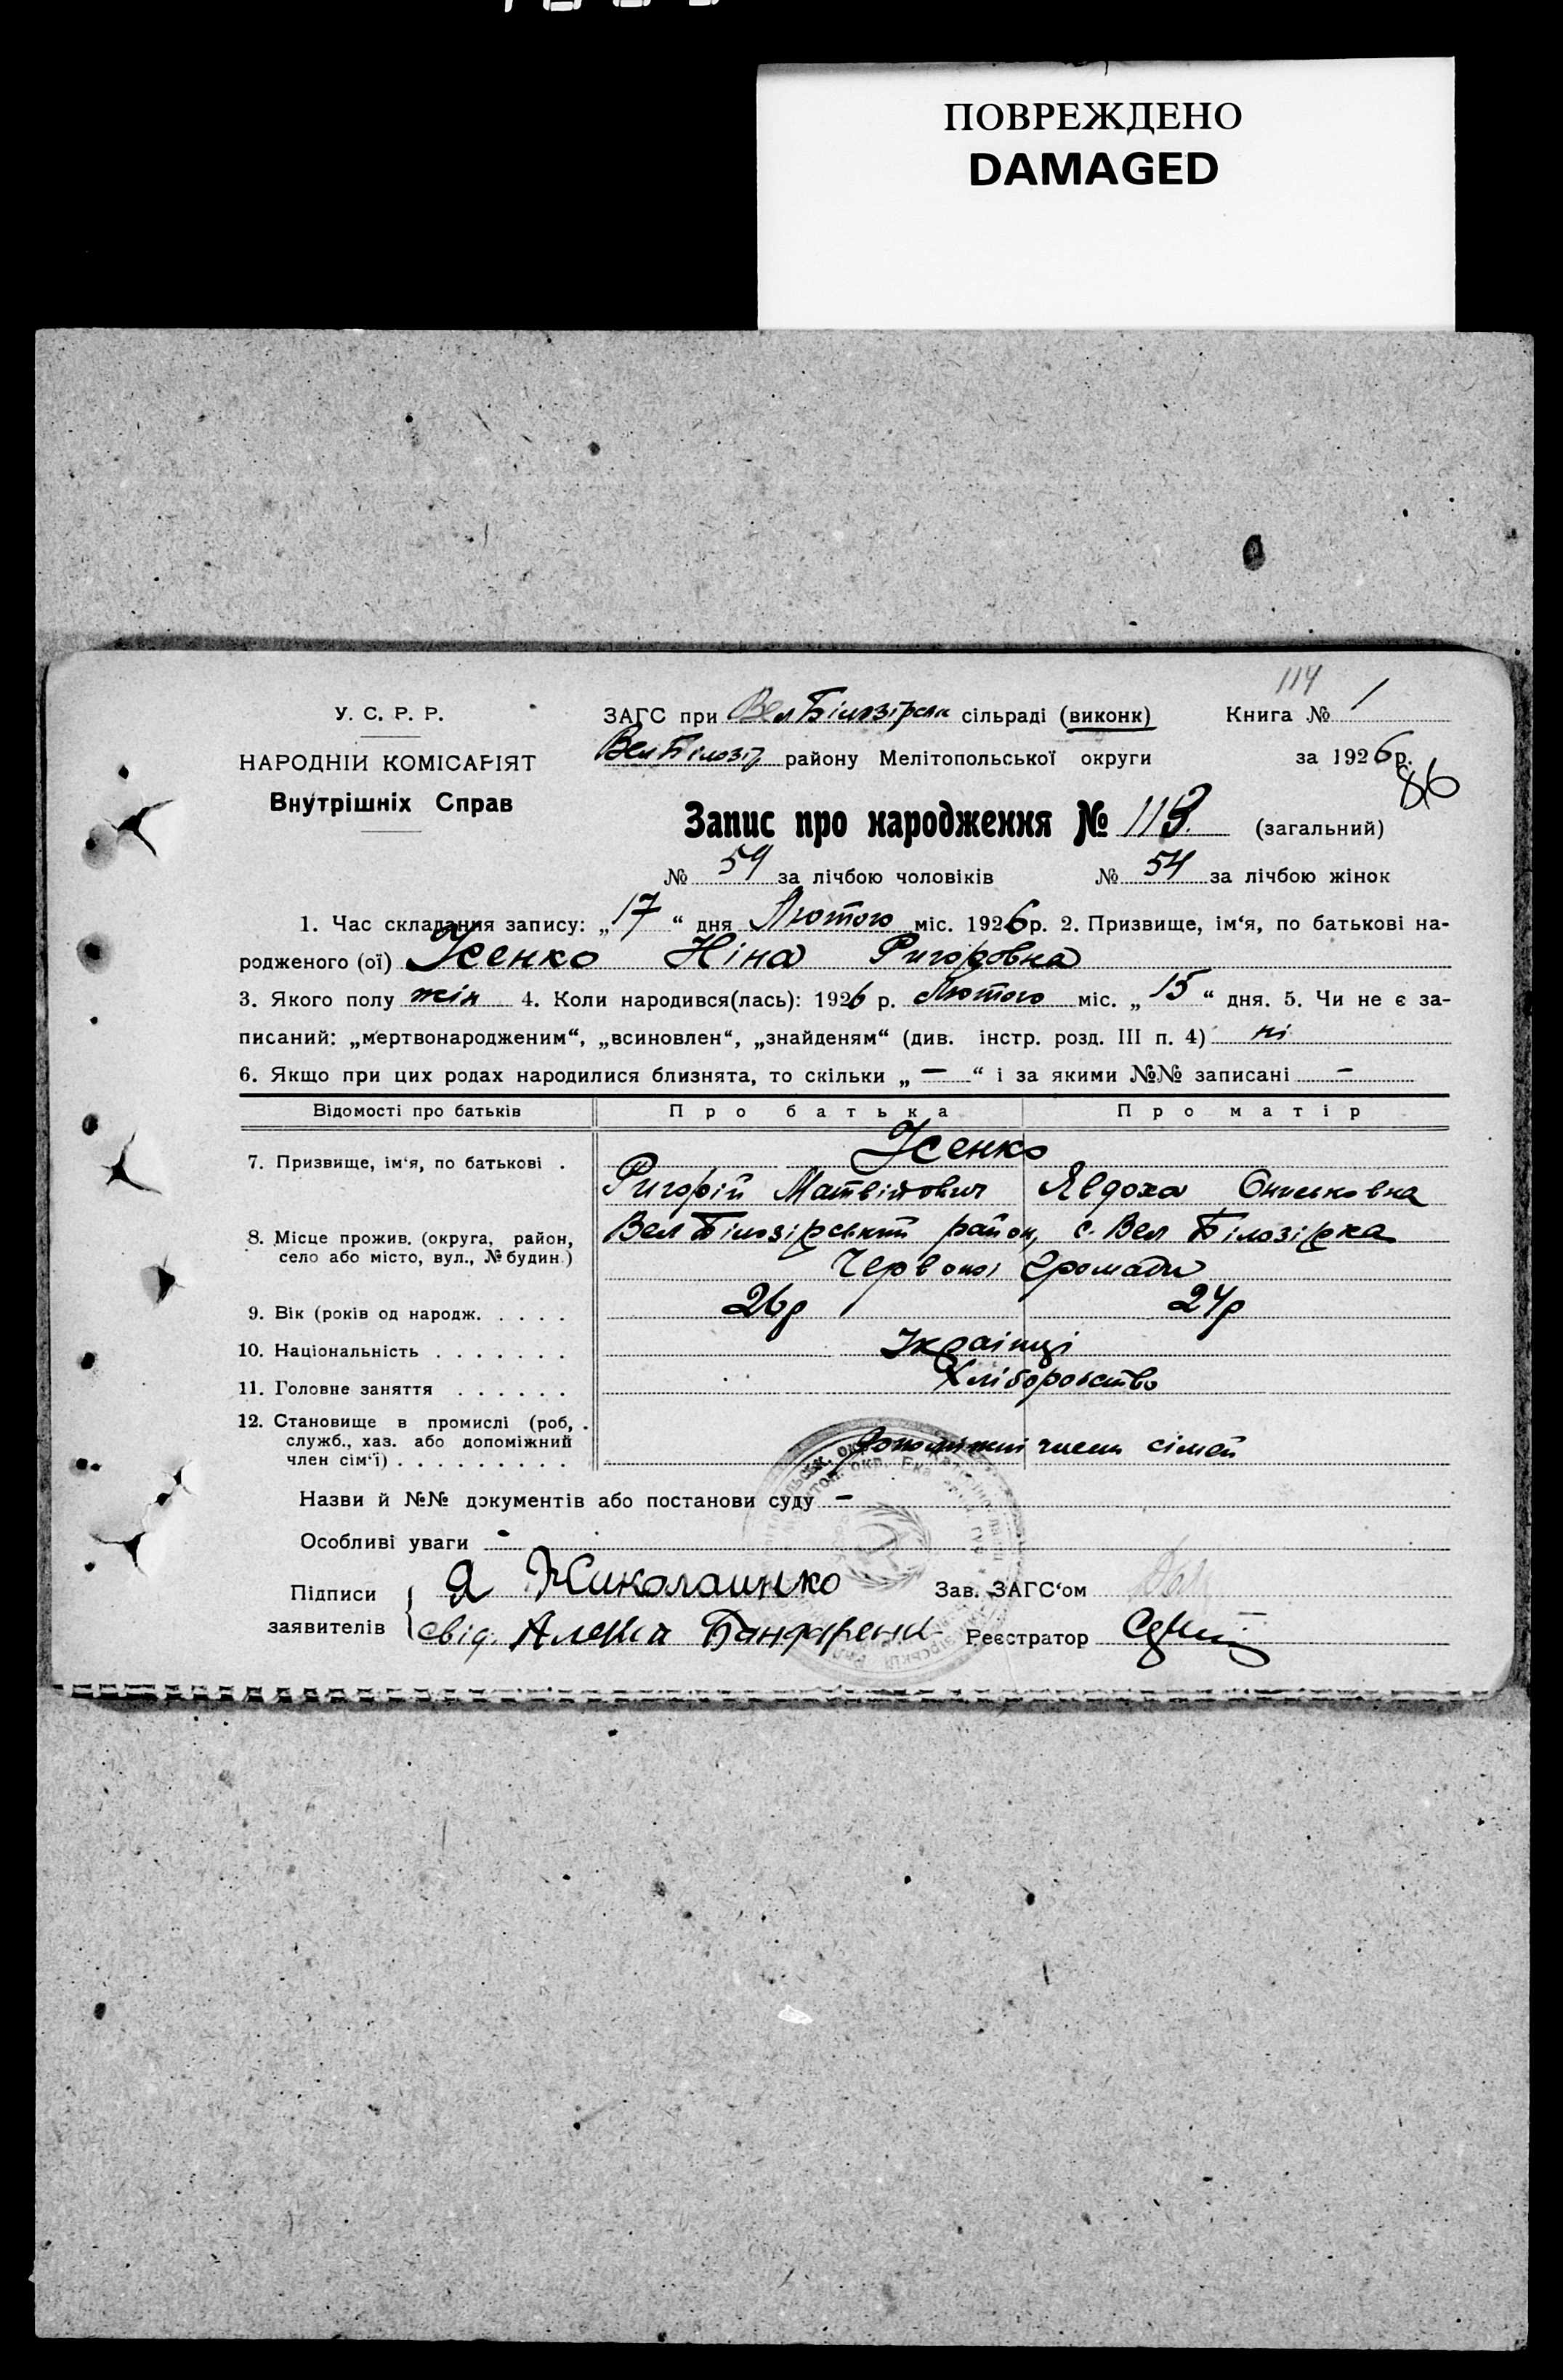 ПОВРЕЖДЕНО
DAMAGED
114
У. С. Р. Р.
НАРОДНІЙ КОМІСАРІЯТ
Внутрішніх Справ
ЗАГС при Вел Білозірськ сільраді (виконк) Книга № 1
Вел Білозір району Мелітопольської округи за 1926 р.
86
Запис про народження № 113 (загальний)
№ 59 за лічбою чоловіків № 54 за лічбою жінок
1. Час складання запису: „17“ дня Лютого міс. 1926 р. 2. Призвище, ім‘я, по батькові на-
родженого (ої) Усенко Ніна Григоровна
3. Якого полу жін 4. Коли народився(лась): 1926 р. Лютого міс. „15“ дня. 5. Чи не є за-
писаний: „мертвонародженим“, „всиновлен“, „знайденям“ (див. інстр. розд. III п. 4) ні
6. Якщо при цих родах народилися близнята, то скільки „—“ і за якими №№ записані —
Відомості про батьків Про батька Про матір
7. Призвище, ім‘я, по батькові . Усенко
Григорій Матвійович Явдоха
8. Місце прожив. (округа, район, село або місто, вул., № будин.) Вел Білозірський район, с. Вел Білозірка
Червоної Громади
9. Вік (років од народж. . . . . 26 р 24 р
10. Національність . . . . . . . Українці
11. Головне заняття . . . . . . Хліборобство
12. Становище в промислі (роб, служб., хаз. або допоміжний член сім‘ї) . . . . . . . . . допоміжні члени сімей
Назви й №№ документів або постанови суду —
Особливі уваги -
Підписи заявителів Я Николаинко Зав. ЗАГС‘ом
свід. Реєстратор